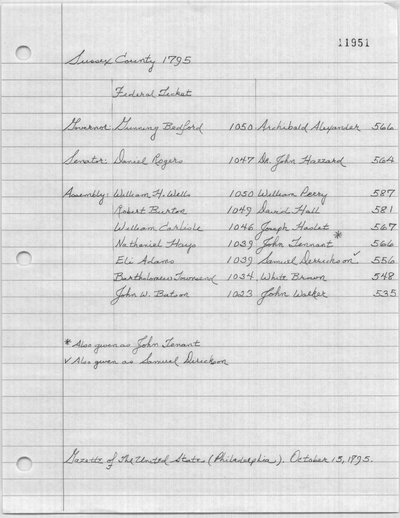 11951
Sussex County 1795
Federal Ticket
Governor: Gunning Bedford 1050 Archibald Alexander 566
Senator: Daniel Rogers 1047 Dr. John Hazzard 564
Assembly: William H. Wells 1050 William Perry 587
Robert Burton 1049 David Hall 581
William Carlisle 1046 Joseph Haslet 567
Nathaniel Hays 1039 John Tennant * 566
Eli Adams 1039 Samuel Derrickson ✓ 556
Bartholomew Townsend 1034 White Brown 548
John W. Batson 1023 John Walker 535
* Also given as John Tenant
✓ Also given as Samuel Derickson
Gazette of The United State (Philadelphia). October 13, 1795.